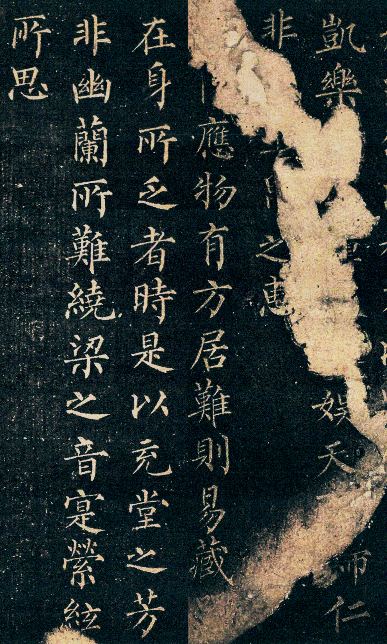 凱樂娛天仁
非之惠
應物有方居難則易藏
在身所乏者時是以充堂之芳
非幽蘭所難繞梁之音寔縈絃
所思